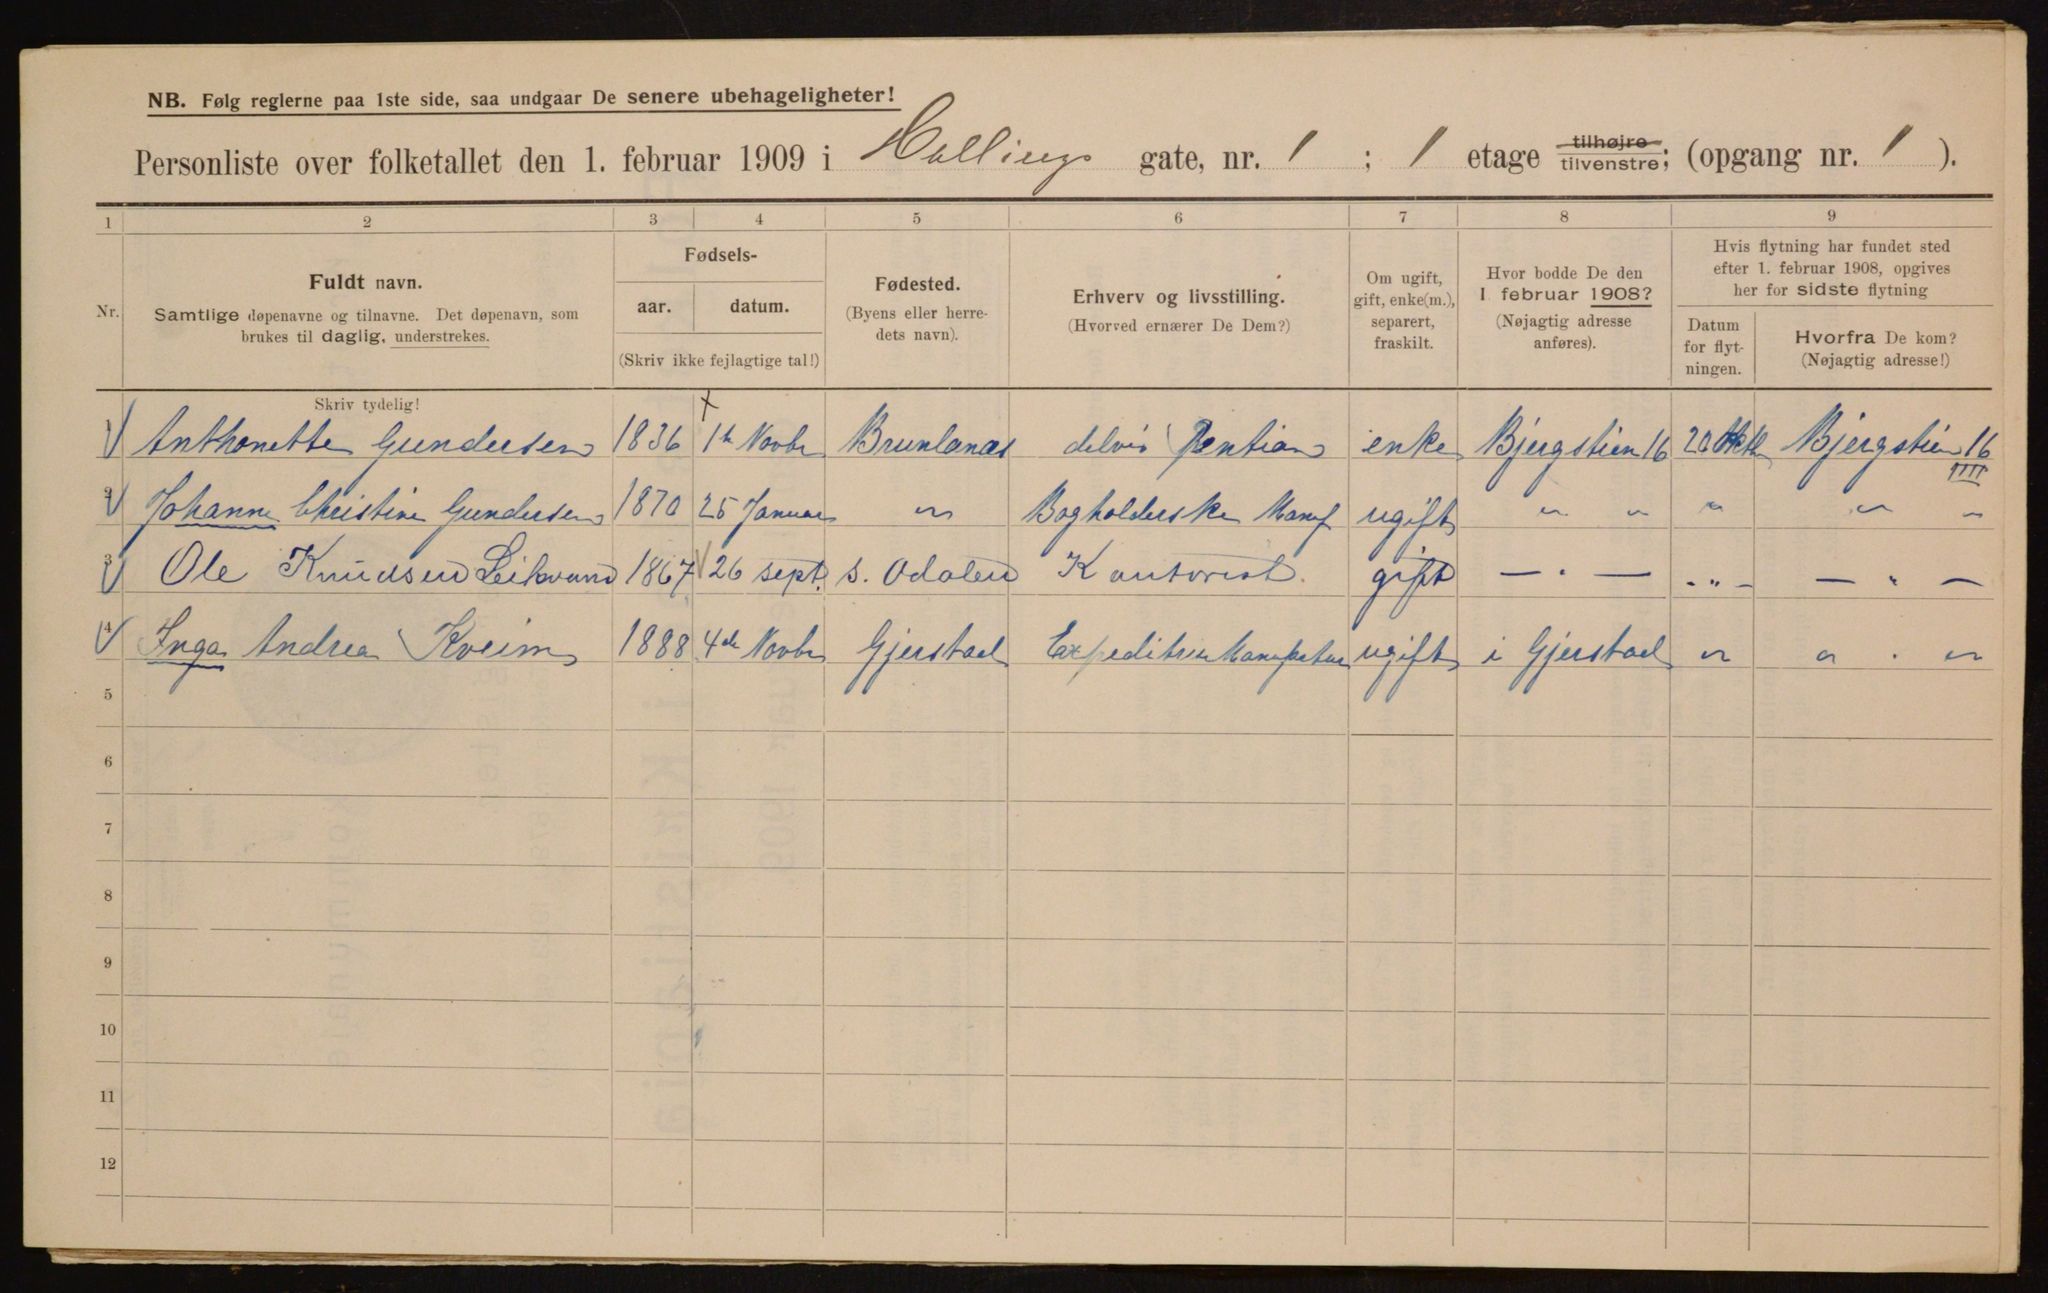 NB. Følg reglerne paa 1ste side, saa undgaar De senere ubehageligheter!
Personliste over folketallet den 1. februar 1909 i Hallings gate, nr. 1 ; 1 etage tilhøjre tilvenstre; (opgang nr. 1 ).
1 2 3 4 5 6 7 8 9
Nr.
Fuldt navn.
Samtlige døpenavne og tilnavne. Det døpenavn, som
brukes til daglig, understrekes.
Skriv tydelig!
Fødsels-
aar. datum.
(Skriv ikke fejlagtige tal!)
Fødested.
(Byens eller herre-
dets navn).
Erhverv og livsstilling.
(Hvorved ernærer De Dem?)
Om ugift,
gift, enke(m.),
separert,
fraskilt.
Hvor bodde De den
1 februar 1908?
(Nøjagtig adresse
anføres).
Hvis flytning har fundet sted
efter 1. februar 1908, opgives
her for sidste flytning
Datum
for flyt-
ningen.
Hvorfra De kom?
(Nøjagtig adresse!)
1 Anthonette Gundersen 1836 1ste Novbr Brunlanæs delvis enke Bjergstien 16 20 Oktbr Bjergstien 16 IIII
2 Johanne Christine Gundersen 1870 25 Januar " Bogholderske Manuf ugift " " " " "
3 Ole Knudsen 1867 26 sept. S. Odalen Kontorist. gift — " — - " - — " —
4 Inga Andrea Kveim 1888 4de Novbr Gjerstad Expeditrise Manufaktur ugift i Gjerstad " " . "
5
6
7
8
9
10
11
12